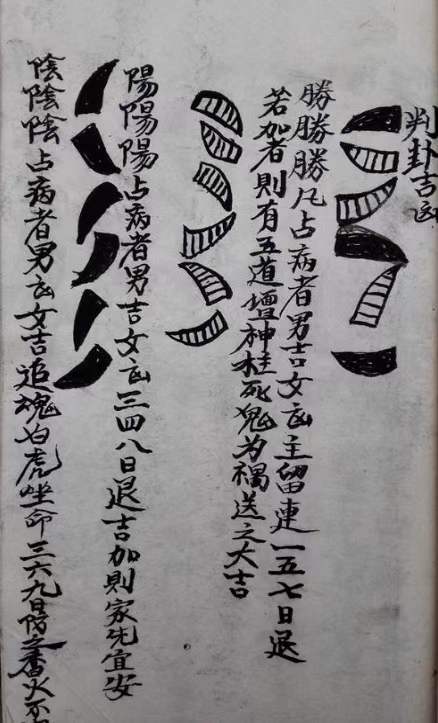 判卦吉凶
勝勝勝凡占病者男吉女凶主留連一五七日退
若加者則有五道壇神枉死鬼为禍送之大吉
陽陽陽占病者男吉女凶三四八日退吉加則家先宜安
陰陰陰占病者男凶女吉追魂白虎坐命三六九日防之香火不